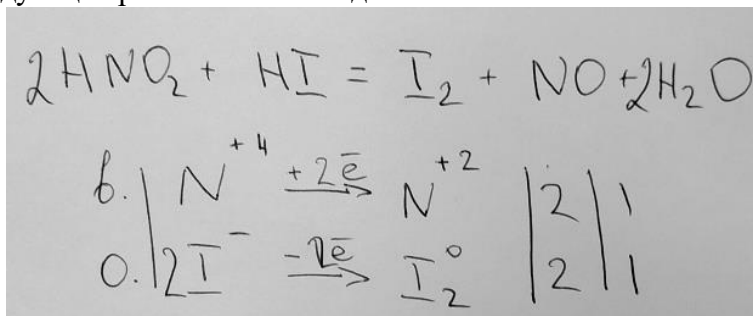 2HNO₂ + HI = I₂ + NO + 2H₂O
в. | N⁺⁴ +2ē → N⁺² | 2 | 1
о. | 2I⁻ -2ē → I₂⁰ | 2 | 1